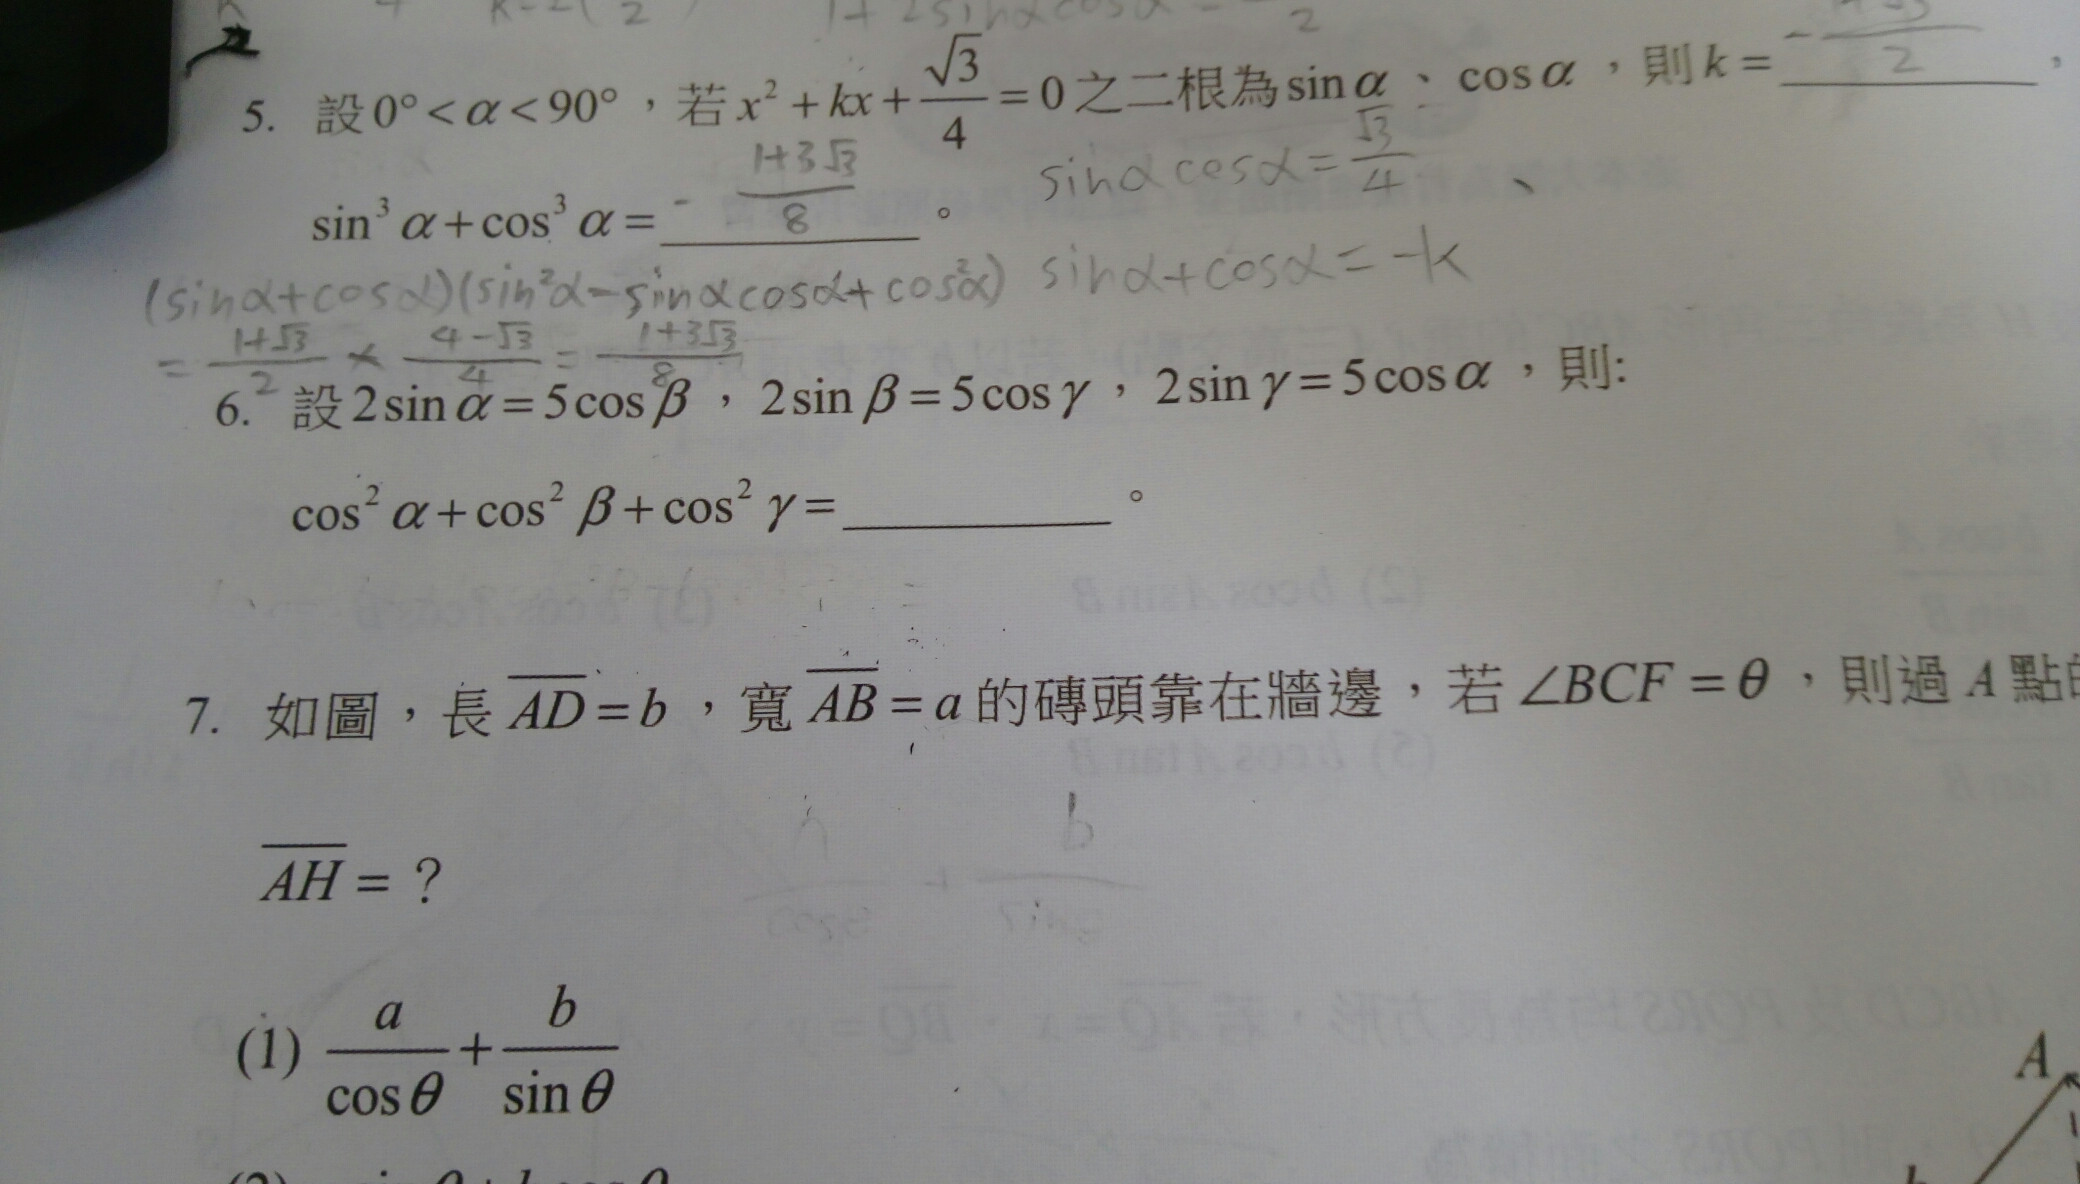 1+2sinαcosα
5. 設0°<α<90°，若x²+kx+√3/4=0之二根為sinα、cosα，則k= -(1+√3)/2，
sinαcosα=√3/4
sin³α+cos³α= -(1+3√3)/8。
(sinα+cosα)(sin²α-sinαcosα+cos²α) sinα+cosα=-k
=(1+√3)/2×(4-√3)/4=(1+3√3)/8
6. 設2sinα=5cosβ，2sinβ=5cosγ，2sinγ=5cosα，則:
cos²α+cos²β+cos²γ=________。
7. 如圖，長AD=b，寬AB=a的磚頭靠在牆邊，若∠BCF=θ，則過A點的
AH=？
(1) a/cosθ+b/sinθ
A
b